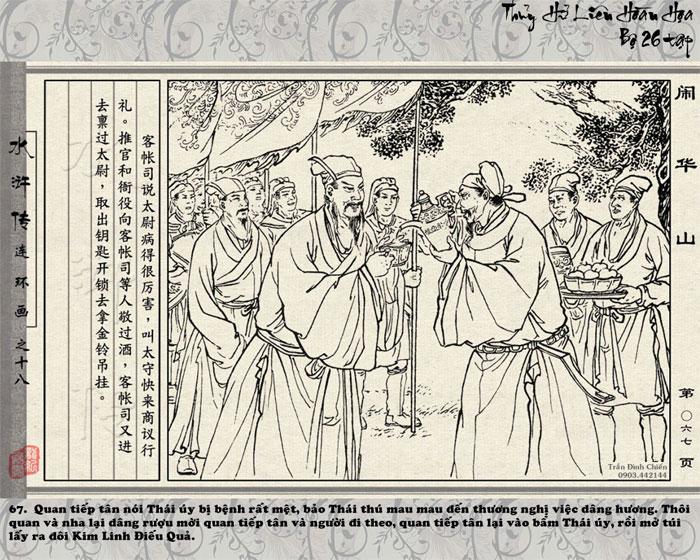 Thủy Hử Liên Hoàn Họa
Bộ 26 tập
闹华山
水浒传连环画之十八
客帐司说太尉病得很厉害，叫太守快来商议行
礼。推官和衙役向客帐司等人敬过酒，客帐司又进
去禀过太尉，取出钥匙开锁去拿金铃吊挂。
第〇六七页
Trần Đình Chiến
0903.442144
67. Quan tiếp tân nói Thái úy bị bệnh rất mệt, bảo Thái thú mau mau đến thương nghị việc dâng hương. Thôi
quan và nha lại dâng rượu mời quan tiếp tân và người đi theo, quan tiếp tân lại vào bẩm Thái úy, rồi mở túi
lấy ra đôi Kim Linh Điếu Quả.